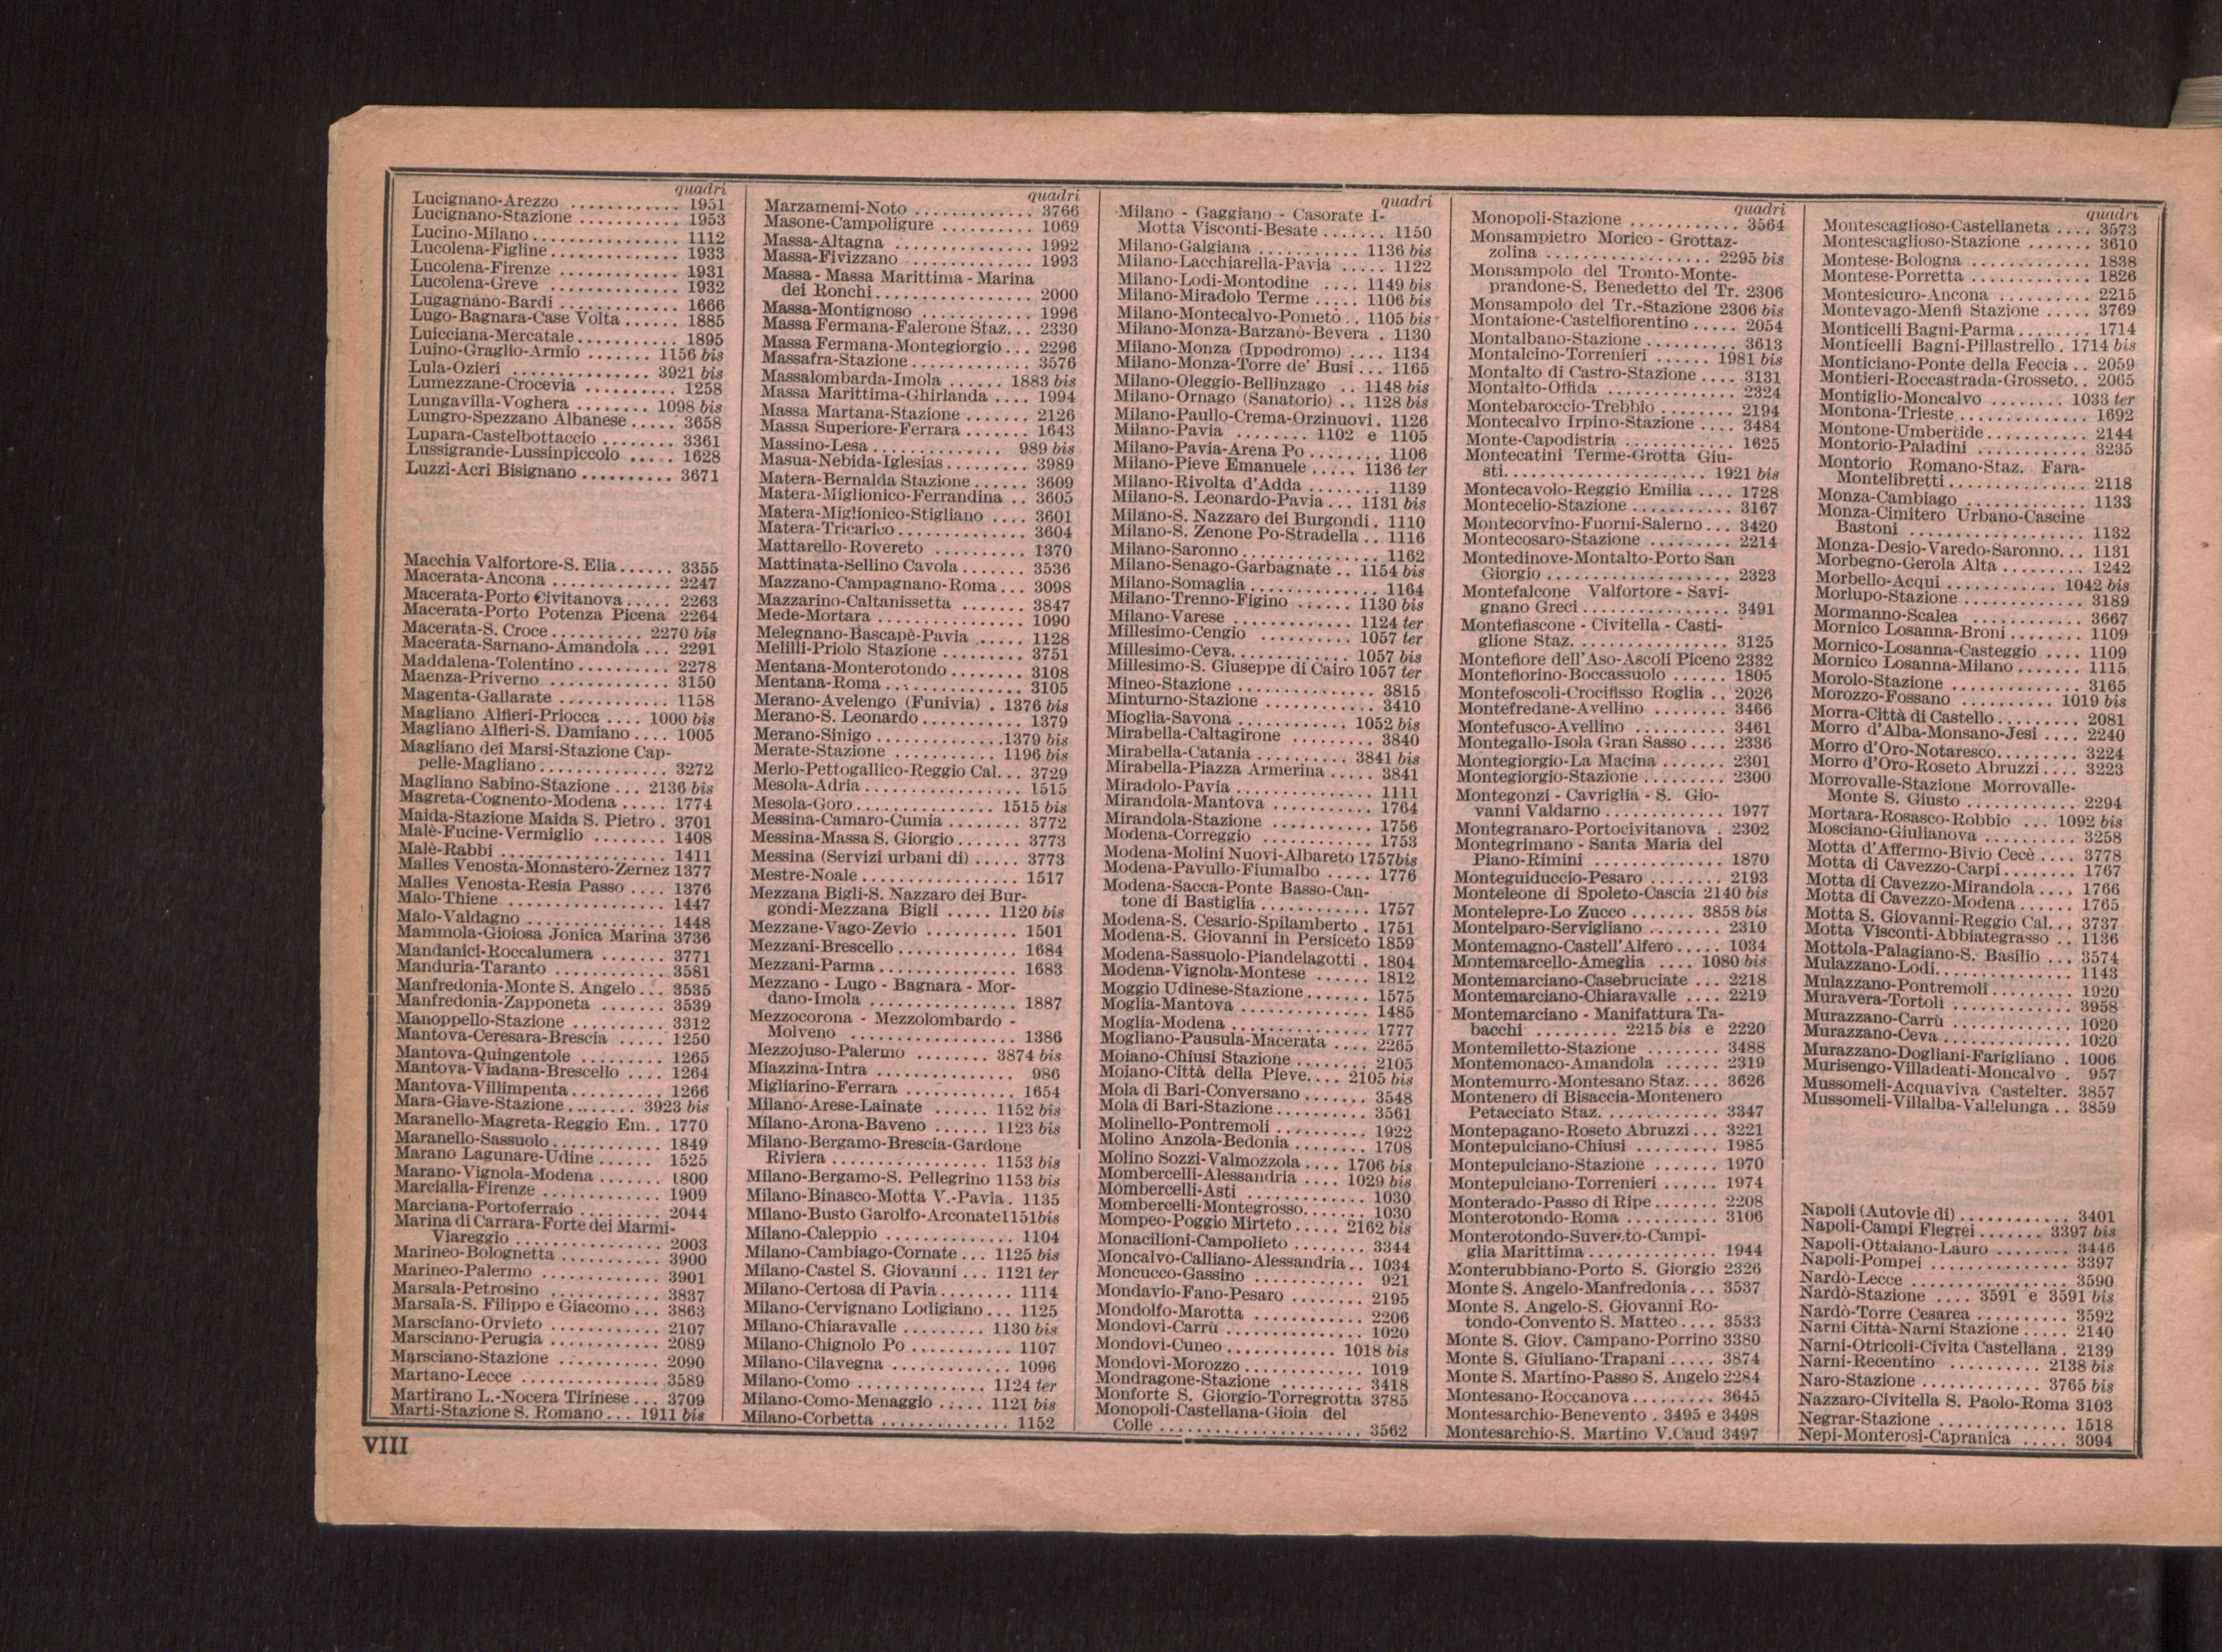 quadri
Lucignano-Arezzo ............ 1951
Lucignano-Stazione ........... 1953
Lucino-Milano ................ 1112
Lucolena-Figline .............. 1933
Lucolena-Firenze ............ 1931
Lucolena-Greve .............. 1932
Lugagnano-Bardi ............ 1666
Lugo-Bagnara-Case Volta ...... 1885
Luicciana-Mercatale ........... 1895
Luino-Graglio-Armio ....... 1156 bis
Lula-Ozieri ............... 3921 bis
Lumezzane-Crocevia .......... 1258
Lungavilla-Voghera ........ 1098 bis
Lungro-Spezzano Albanese ..... 3658
Lupara-Castelbottaccio ........ 3361
Lussigrande-Lussinpiccolo ..... 1628
Luzzi-Acri Bisignano .......... 3671
Macchia Valfortore-S. Elia ...... 3355
Macerata-Ancona ............ 2247
Macerata-Porto Civitanova ..... 2263
Macerata-Porto Potenza Picena 2264
Macerata-S. Croce .......... 2270 bis
Macerata-Sarnano-Amandola ... 2291
Maddalena-Tolentino .......... 2278
Maenza-Priverno ............. 3150
Magenta-Gallarate ............ 1158
Magliano Alfieri-Priocca .... 1000 bis
Magliano Alfieri-S. Damiano .... 1005
Magliano dei Marsi-Stazione Cap-
pelle-Magliano .............. 3272
Magliano Sabino-Stazione ... 2136 bis
Magreta-Cognento-Modena ..... 1774
Maida-Stazione Maida S. Pietro . 3701
Malè-Fucine-Vermiglio ........ 1408
Malè-Rabbi .................. 1411
Malles Venosta-Monastero-Zernez 1377
Malles Venosta-Resia Passo .... 1376
Malo-Thiene ................. 1447
Malo-Valdagno ............... 1448
Mammola-Gioiosa Jonica Marina 3736
Mandanici-Roccalumera ....... 3771
Manduria-Taranto ............ 3581
Manfredonia-Monte S. Angelo ... 3535
Manfredonia-Zapponeta ....... 3539
Manoppello-Stazione .......... 3312
Mantova-Ceresara-Brescia ..... 1250
Mantova-Quingentole ......... 1265
Mantova-Viadana-Brescello .... 1264
Mantova-Villimpenta .......... 1266
Mara-Giave-Stazione ........ 3923 bis
Maranello-Magreta-Reggio Em. . 1770
Maranello-Sassuolo ........... 1849
Marano Lagunare-Udine ...... 1525
Marano-Vignola-Modena ....... 1800
Marcialla-Firenze ............. 1909
Marciana-Portoferraio ......... 2044
Marina di Carrara-Forte dei Marmi-
Viareggio .................. 2003
Marineo-Bolognetta ........... 3900
Marineo-Palermo ............. 3901
Marsala-Petrosino ............ 3837
Marsala-S. Filippo e Giacomo ... 3863
Marsciano-Orvieto ............ 2107
Marsciano-Perugia ............ 2089
Marsciano-Stazione ........... 2090
Martano-Lecce ............... 3589
Martirano L.-Nocera Tirinese ... 3709
Marti-Stazione S. Romano ... 1911 bis
quadri
Marzamemi-Noto ............. 3766
Masone-Campoligure .......... 1069
Massa-Altagna ............... 1992
Massa-Fivizzano ............. 1993
Massa - Massa Marittima - Marina
dei Ronchi ................. 2000
Massa-Montignoso ............ 1996
Massa Fermana-Falerone Staz. .. 2330
Massa Fermana-Montegiorgio ... 2296
Massafra-Stazione ............ 3576
Massalombarda-Imola ...... 1883 bis
Massa Marittima-Ghirlanda .... 1994
Massa Martana-Stazione ....... 2126
Massa Superiore-Ferrara ....... 1643
Massino-Lesa .............. 989 bis
Masua-Nebida-Iglesias ......... 3989
Matera-Bernalda Stazione ...... 3609
Matera-Miglionico-Ferrandina .. 3605
Matera-Miglionico-Stigliano .... 3601
Matera-Tricarico .............. 3604
Mattarello-Rovereto .......... 1370
Mattinata-Sellino Cavola ....... 3536
Mazzano-Campagnano-Roma ... 3098
Mazzarino-Caltanissetta ....... 3847
Mede-Mortara ................ 1090
Melegnano-Bascapè-Pavia ..... 1128
Melilli-Priolo Stazione ......... 3751
Mentana-Monterotondo ........ 3108
Mentana-Roma ............... 3105
Merano-Avelengo (Funivia) . 1376 bis
Merano-S. Leonardo ........... 1379
Merano-Sinigo .............. 1379 bis
Merate-Stazione ........... 1196 bis
Merlo-Pettogallico-Reggio Cal. .. 3729
Mesola-Adria ................. 1515
Mesola-Goro ............... 1515 bis
Messina-Camaro-Cumia ........ 3772
Messina-Massa S. Giorgio ....... 3773
Messina (Servizi urbani di) ..... 3773
Mestre-Noale ................. 1517
Mezzana Bigli-S. Nazzaro dei Bur-
gondi-Mezzana Bigli ..... 1120 bis
Mezzane-Vago-Zevio .......... 1501
Mezzani-Brescello ............. 1684
Mezzani-Parma ............... 1683
Mezzano - Lugo - Bagnara - Mor-
dano-Imola ................ 1887
Mezzocorona - Mezzolombardo -
Molveno .................. 1386
Mezzojuso-Palermo ........ 3874 bis
Miazzina-Intra ............... 986
Migliarino-Ferrara ............ 1654
Milano-Arese-Lainate ...... 1152 bis
Milano-Arona-Baveno ...... 1123 bis
Milano-Bergamo-Brescia-Gardone
Riviera ................. 1153 bis
Milano-Bergamo-S. Pellegrino 1153 bis
Milano-Binasco-Motta V.-Pavia . 1135
Milano-Busto Garolfo-Arconate1151bis
Milano-Caleppio .............. 1104
Milano-Cambiago-Cornate ... 1125 bis
Milano-Castel S. Giovanni ... 1121 ter
Milano-Certosa di Pavia ........ 1114
Milano-Cervignano Lodigiano ... 1125
Milano-Chiaravalle ......... 1130 bis
Milano-Chignolo Po ........... 1107
Milano-Cilavegna ............. 1096
Milano-Como .............. 1124 ter
Milano-Como-Menaggio ..... 1121 bis
Milano-Corbetta .............. 1152
quadri
Milano - Gaggiano - Casorate I-
Motta Visconti-Besate ....... 1150
Milano-Galgiana ........... 1136 bis
Milano-Lacchiarella-Pavia ..... 1122
Milano-Lodi-Montodine .... 1149 bis
Milano-Miradolo Terme ..... 1106 bis
Milano-Montecalvo-Pometo .. 1105 bis
Milano-Monza-Barzanò-Bevera . 1130
Milano-Monza (Ippodromo) .... 1134
Milano-Monza-Torre de' Busi ... 1165
Milano-Oleggio-Bellinzago .. 1148 bis
Milano-Ornago (Sanatorio) .. 1128 bis
Milano-Paullo-Crema-Orzinuovi . 1126
Milano-Pavia ........ 1102 e 1105
Milano-Pavia-Arena Po ........ 1106
Milano-Pieve Emanuele ..... 1136 ter
Milano-Rivolta d'Adda ........ 1139
Milano-S. Leonardo-Pavia ... 1131 bis
Milano-S. Nazzaro dei Burgondi . 1110
Milano-S. Zenone Po-Stradella .. 1116
Milano-Saronno ............... 1162
Milano-Senago-Garbagnate .. 1154 bis
Milano-Somaglia .............. 1164
Milano-Trenno-Figino ...... 1130 bis
Milano-Varese ............ 1124 ter
Millesimo-Cengio .......... 1057 ter
Millesimo-Ceva. ............ 1057 bis
Millesimo-S. Giuseppe di Cairo 1057 ter
Mineo-Stazione ............... 3815
Minturno-Stazione ............ 3410
Mioglia-Savona ............ 1052 bis
Mirabella-Caltagirone ......... 3840
Mirabella-Catania .......... 3841 bis
Mirabella-Piazza Armerina ..... 3841
Miradolo-Pavia ............... 1111
Mirandola-Mantova ........... 1764
Mirandola-Stazione ........... 1756
Modena-Correggio ............ 1753
Modena-Molini Nuovi-Albareto 1757bis
Modena-Pavullo-Fiumalbo ..... 1776
Modena-Sacca-Ponte Basso-Can-
tone di Bastiglia ............ 1757
Modena-S. Cesario-Spilamberto . 1751
Modena-S. Giovanni in Persiceto 1859
Modena-Sassuolo-Piandelagotti . 1804
Modena-Vignola-Montese ...... 1812
Moggio Udinese-Stazione ....... 1575
Moglia-Mantova .............. 1485
Moglia-Modena ............... 1777
Mogliano-Pausula-Macerata .... 2265
Moiano-Chiusi Stazione ........ 2105
Moiano-Città della Pieve. ... 2105 bis
Mola di Bari-Conversano ....... 3548
Mola di Bari-Stazione .......... 3561
Molinello-Pontremoli .......... 1922
Molino Anzola-Bedonia ........ 1708
Molino Sozzi-Valmozzola .... 1706 bis
Mombercelli-Alessandria .... 1029 bis
Mombercelli-Asti ............. 1030
Mombercelli-Montegrosso. ...... 1030
Mompeo-Poggio Mirteto ..... 2162 bis
Monacilioni-Campolieto ........ 3344
Moncalvo-Calliano-Alessandria .. 1034
Moncucco-Gassino ............ 921
Mondavio-Fano-Pesaro ........ 2195
Mondolfo-Marotta ............ 2206
Mondovì-Carrù ............... 1020
Mondovì-Cuneo ............ 1018 bis
Mondovì-Morozzo ............. 1019
Mondragone-Stazione .......... 3418
Monforte S. Giorgio-Torregrotta 3785
Monopoli-Castellana-Gioia del
Colle ...................... 3562
quadri
Monopoli-Stazione ............ 3564
Monsampietro Morico - Grottaz-
zolina ................. 2295 bis
Monsampolo del Tronto-Monte-
prandone-S. Benedetto del Tr. 2306
Monsampolo del Tr.-Stazione 2306 bis
Montaione-Castelfiorentino ..... 2054
Montalbano-Stazione .......... 3613
Montalcino-Torrenieri ...... 1981 bis
Montalto di Castro-Stazione .... 3131
Montalto-Offida .............. 2324
Montebaroccio-Trebbio ........ 2194
Montecalvo Irpino-Stazione .... 3484
Monte-Capodistria ............ 1625
Montecatini Terme-Grotta Giu-
sti. ..................... 1921 bis
Montecavolo-Reggio Emilia .... 1728
Montecelio-Stazione ........... 3167
Montecorvino-Fuorni-Salerno ... 3420
Montecosaro-Stazione ......... 2214
Montedinove-Montalto-Porto San
Giorgio ................... 2323
Montefalcone Valfortore - Savi-
gnano Greci ............... 3491
Montefiascone - Civitella - Casti-
glione Staz. ................ 3125
Montefiore dell'Aso-Ascoli Piceno 2332
Montefiorino-Boccassuolo ...... 1805
Montefoscoli-Crocifisso Roglia .. 2026
Montefredane-Avellino ........ 3466
Montefusco-Avellino .......... 3461
Montegallo-Isola Gran Sasso .... 2336
Montegiorgio-La Macina ....... 2301
Montegiorgio-Stazione ......... 2300
Montegonzi - Cavriglia - S. Gio-
vanni Valdarno ............. 1977
Montegranaro-Portocivitanova . 2302
Montegrimano - Santa Maria del
Piano-Rimini .............. 1870
Monteguiduccio-Pesaro ........ 2193
Monteleone di Spoleto-Cascia 2140 bis
Montelepre-Lo Zucco ....... 3858 bis
Montelparo-Servigliano ........ 2310
Montemagno-Castell'Alfero ..... 1034
Montemarcello-Ameglia .... 1080 bis
Montemarciano-Casebruciate ... 2218
Montemarciano-Chiaravalle .... 2219
Montemarciano - Manifattura Ta-
bacchi ......... 2215 bis e 2220
Montemiletto-Stazione ........ 3488
Montemonaco-Amandola ...... 2319
Montemurro-Montesano Staz. ... 3626
Montenero di Bisaccia-Montenero
Petacciato Staz. ............. 3347
Montepagano-Roseto Abruzzi ... 3221
Montepulciano-Chiusi .......... 1985
Montepulciano-Stazione ....... 1970
Montepulciano-Torrenieri ...... 1974
Monterado-Passo di Ripe ....... 2208
Monterotondo-Roma .......... 3106
Monterotondo-Suvereto-Campi-
glia Marittima .............. 1944
Monterubbiano-Porto S. Giorgio 2326
Monte S. Angelo-Manfredonia ... 3537
Monte S. Angelo-S. Giovanni Ro-
tondo-Convento S. Matteo .... 3533
Monte S. Giov. Campano-Porrino 3380
Monte S. Giuliano-Trapani ..... 3874
Monte S. Martino-Passo S. Angelo 2284
Montesano-Roccanova ......... 3645
Montesarchio-Benevento . 3495 e 3498
Montesarchio-S. Martino V.Caud 3497
quadri
Montescaglioso-Castellaneta .... 3573
Montescaglioso-Stazione ....... 3610
Montese-Bologna ............. 1838
Montese-Porretta ............. 1826
Montesicuro-Ancona .......... 2215
Montevago-Menfi Stazione ..... 3769
Monticelli Bagni-Parma ........ 1714
Monticelli Bagni-Pillastrello . 1714 bis
Monticiano-Ponte della Feccia .. 2059
Montieri-Roccastrada-Grosseto. . 2065
Montiglio-Moncalvo ........ 1033 ter
Montona-Trieste .............. 1692
Montone-Umbertide ........... 2144
Montorio-Paladini ............ 3235
Montorio Romano-Staz. Fara-
Montelibretti ............... 2118
Monza-Cambiago ............. 1133
Monza-Cimitero Urbano-Cascine
Bastoni ................... 1132
Monza-Desio-Varedo-Saronno. .. 1131
Morbegno-Gerola Alta ......... 1242
Morbello-Acqui ............ 1042 bis
Morlupo-Stazione ............. 3189
Mormanno-Scalea ............ 3667
Mornico Losanna-Broni ........ 1109
Mornico-Losanna-Casteggio .... 1109
Mornico Losanna-Milano ....... 1115
Morolo-Stazione .............. 3165
Morozzo-Fossano .......... 1019 bis
Morra-Città di Castello ......... 2081
Morro d'Alba-Monsano-Jesi .... 2240
Morro d'Oro-Notaresco ......... 3224
Morro d'Oro-Roseto Abruzzi .... 3223
Morrovalle-Stazione Morrovalle-
Monte S. Giusto ............ 2294
Mortara-Rosasco-Robbio ... 1092 bis
Mosciano-Giulianova .......... 3258
Motta d'Affermo-Bivio Cecè .... 3778
Motta di Cavezzo-Carpi ........ 1767
Motta di Cavezzo-Mirandola .... 1766
Motta di Cavezzo-Modena ...... 1765
Motta S. Giovanni-Reggio Cal. .. 3737
Motta Visconti-Abbiategrasso .. 1136
Mottola-Palagiano-S. Basilio ... 3574
Mulazzano-Lodi. .............. 1143
Mulazzano-Pontremoli ......... 1920
Muravera-Tortolì ............. 3958
Murazzano-Carrù ............. 1020
Murazzano-Ceva .............. 1020
Murazzano-Dogliani-Farigliano . 1006
Murisengo-Villadeati-Moncalvo . 957
Mussomeli-Acquaviva Castelter. 3857
Mussomeli-Villalba-Vallelunga .. 3859
Napoli (Autovie di) ............ 3401
Napoli-Campi Flegrei ....... 3397 bis
Napoli-Ottaiano-Lauro ........ 3446
Napoli-Pompei ............... 3397
Nardò-Lecce ................. 3590
Nardò-Stazione .... 3591 e 3591 bis
Nardò-Torre Cesarea .......... 3592
Narni Città-Narni Stazione ..... 2140
Narni-Otricoli-Civita Castellana . 2139
Narni-Recentino .......... 2138 bis
Naro-Stazione ............. 3765 bis
Nazzaro-Civitella S. Paolo-Roma 3103
Negrar-Stazione .............. 1518
Nepi-Monterosi-Capranica ..... 3094
VIII